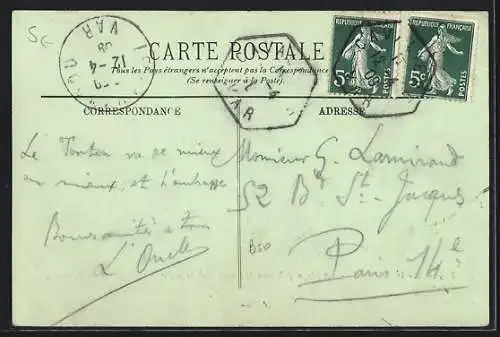 5€
VAR
12-4
08
CARTE POSTALE
Tous les Pays étrangers n'acceptent pas la Correspondance
(Se renseigner à la Poste).
REPUBLIQUE FRANÇAISE
5c
POSTES
REPUBLIQUE FRANÇAISE
5c
POSTES
VAR
CORRESPONDANCE
ADRESSE
Le Tonton va de mieux
en mieux, et t'embrasse
Bonne santé à tous
L'Oncle
Monsieur G. Lamirand
52 Bd St-Jacques
Paris 14e
B50